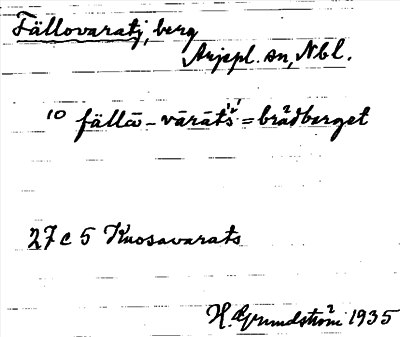 Fällovaratj, berg
Arjepl. sn, Nbl.
10 fällō - vārāts̀ = brådberget
27 C 5 Kuosavarats
H. Grundström 1935